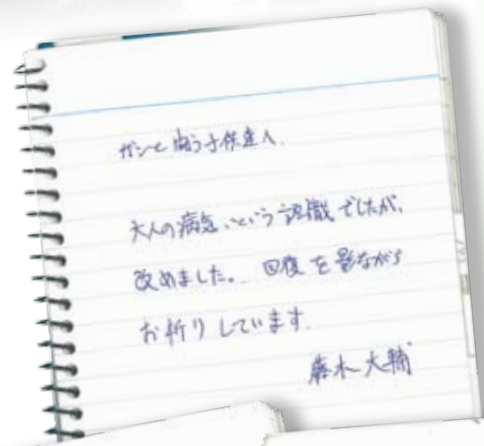 ガンと闘う子供達へ.
大人の病気.という認識でしたが、
改めました。回復を影ながら
お祈りしています.
藤木大輔